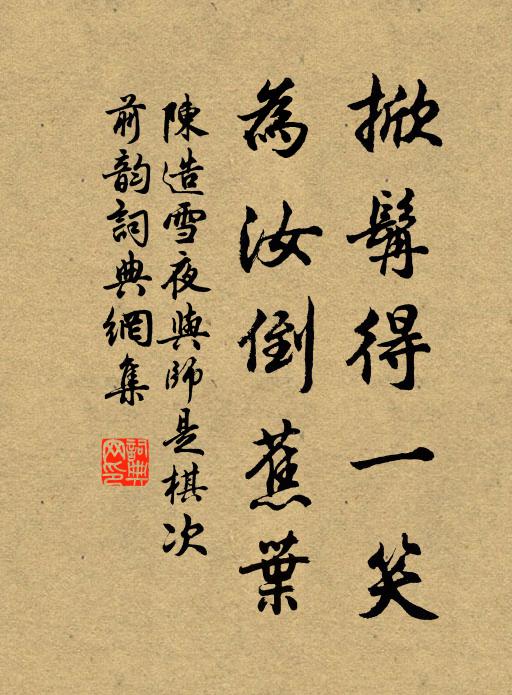 掀髯得一笑
為汝倒蕉葉
陳造雪夜與師是棋次
前韵詞典網集
詞典網印